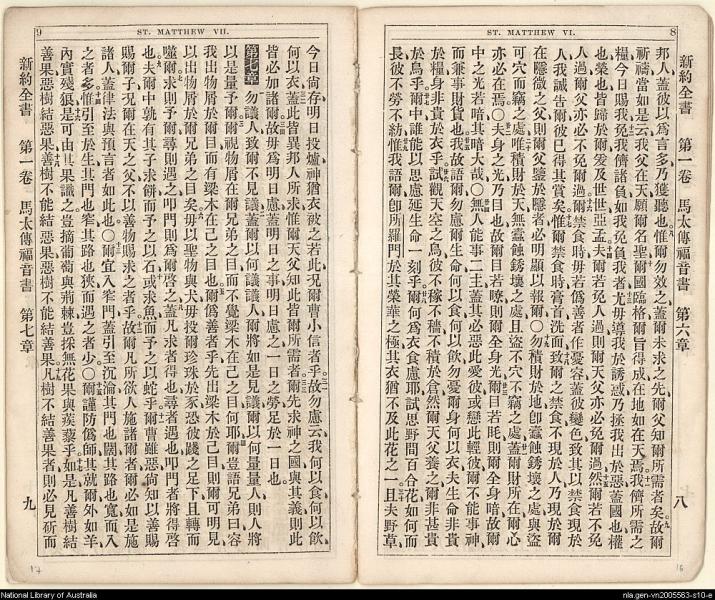 8
ST. MATTHEW VI.
新約全書 第一卷 馬太傳福音書 第六章 八
邦人蓋彼以爲言多乃獲聽也惟爾勿效之蓋爾未求之先爾父知爾所需者矣故爾
祈禱當如是云我父在天願爾名聖爾國臨格爾旨得成在地如在天焉我儕所需之
糧今日賜我免我儕諸負如我免負我者尤毋導我於誘惑乃拯我出於惡蓋國也權
也榮也皆歸於爾爰及世世亞孟夫爾若免人過則天父亦必免爾過然爾若不免
人過爾父亦必不免爾過爾禁食時毋若僞善者作憂容蓋彼變色致其以禁食現於
人我誠告爾彼已得其賞矣惟爾禁食時膏首洗面致爾之禁食不現於人乃現於爾
在隱微之父則爾父鑒於隱者必明顯以報爾〇勿積財於地卽蠧蝕銹壞之處與盜
可穴而竊之處唯積財於天無蠧蝕銹壞之處且盜不穴不竊之處蓋爾財所在爾心
亦必在焉〇夫身之光乃目也故爾目若瞭則爾全身光爾目若眊則爾全身暗故爾
中之光若暗其暗大哉〇無人能事二主蓋其必惡此愛彼或戀此輕彼爾不能事神
而兼事財貨也我故語爾勿慮爾生命何以食何以飲勿憂爾身何以衣夫生命非貴
於糧身非貴於衣乎試觀天空之鳥彼不稼不穡不積於倉然爾天父養之爾非甚貴
於鳥乎爾中誰能以思慮延生命一刻乎爾何爲衣食慮耶試思野間百合花如何而
長彼不勞不紡惟我語爾卽所羅門於其榮華之極其衣猶不及此花之一且夫野草
16
9
ST. MATTHEW VII.
今日尙存明日投爐神猶衣被之若此况爾曹小信者乎故勿慮云我何以食何以飲
何以衣蓋此皆異邦人所求惟爾天父知此皆爾所需者爾先求神之國與其義則此
皆必加諸爾故毋爲明日慮蓋明日之事明日慮之一日之勞足於一日也
第七章 勿議人致爾不見議蓋爾以何議議人爾將如是見議爾以何量量人則人將
以是量予爾爾視物屑在爾兄弟之目而不覺梁木在己之目何耶爾豈語兄弟曰容
我出物屑於爾目而有梁木在己之目也爾僞善者乎先出梁木於己目則爾可明見
以出物屑於爾兄弟之目矣毋以聖物與犬毋投爾珍珠於豕恐彼踐之足下且轉而
噬爾求則予爾尋則遇之叩門則爲爾啓之蓋凡求者得也尋者遇也叩門者將得啓
也夫爾中孰有其子求餠而予之以石或求魚而予之以蛇乎爾曹雖惡尙知以善賜
賜爾子况爾在天之父不以善物賜求之者乎故爾凡所欲人施諸爾者爾必如是施
諸人蓋律法與預言者如此也〇爾宜入窄門蓋引至沉淪其門也闊其路也寬而入
之者多惟引至於生其門也窄其路也狹而遇之者少〇爾謹防僞師其就爾外如羊
內實殘狼是可由其果識之豈摘葡萄與荊棘豈採無花果與蒺藜乎如是凡善樹結
善果惡樹結惡果善樹不能結惡果惡樹不能結善果凡樹不結善果者則必見斫而
新約全書 第一卷 馬太傳福音書 第七章 九
17
National Library of Australia
nla.gen-vn2005563-s10-e